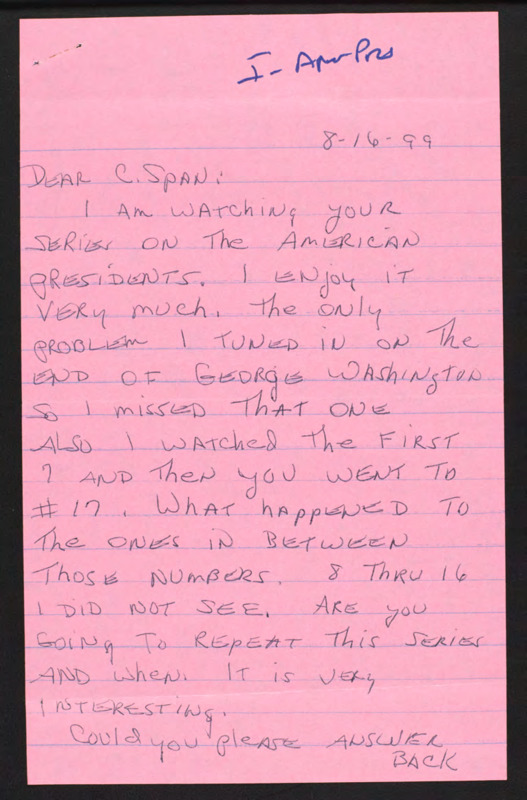 I- Am Pres
8-16-99
DEAR C. SPAN:
I AM WATChiNg YOUR
SERIES ON The AMERICAN
PRESIDENTS. I ENjoy IT
VERy much. The ONly
PROBLEM I TUNED IN ON The
END OF GEORGE WASHINgTON
SO I MISSED THAT ONE
ALSO I WATCHED The FIRST
7 AND Then you WENT TO
#17. WHAT hAppENED TO
The ONES IN BETWEEN
ThosE NUMBERS. 8 ThRU 16
I DID NOT SEE. ARE you
GOINg To REPEAT This SERIES
AND WhEN. IT is VERy
INTERESTINg.
Could you plEASE ANSWER
BACK